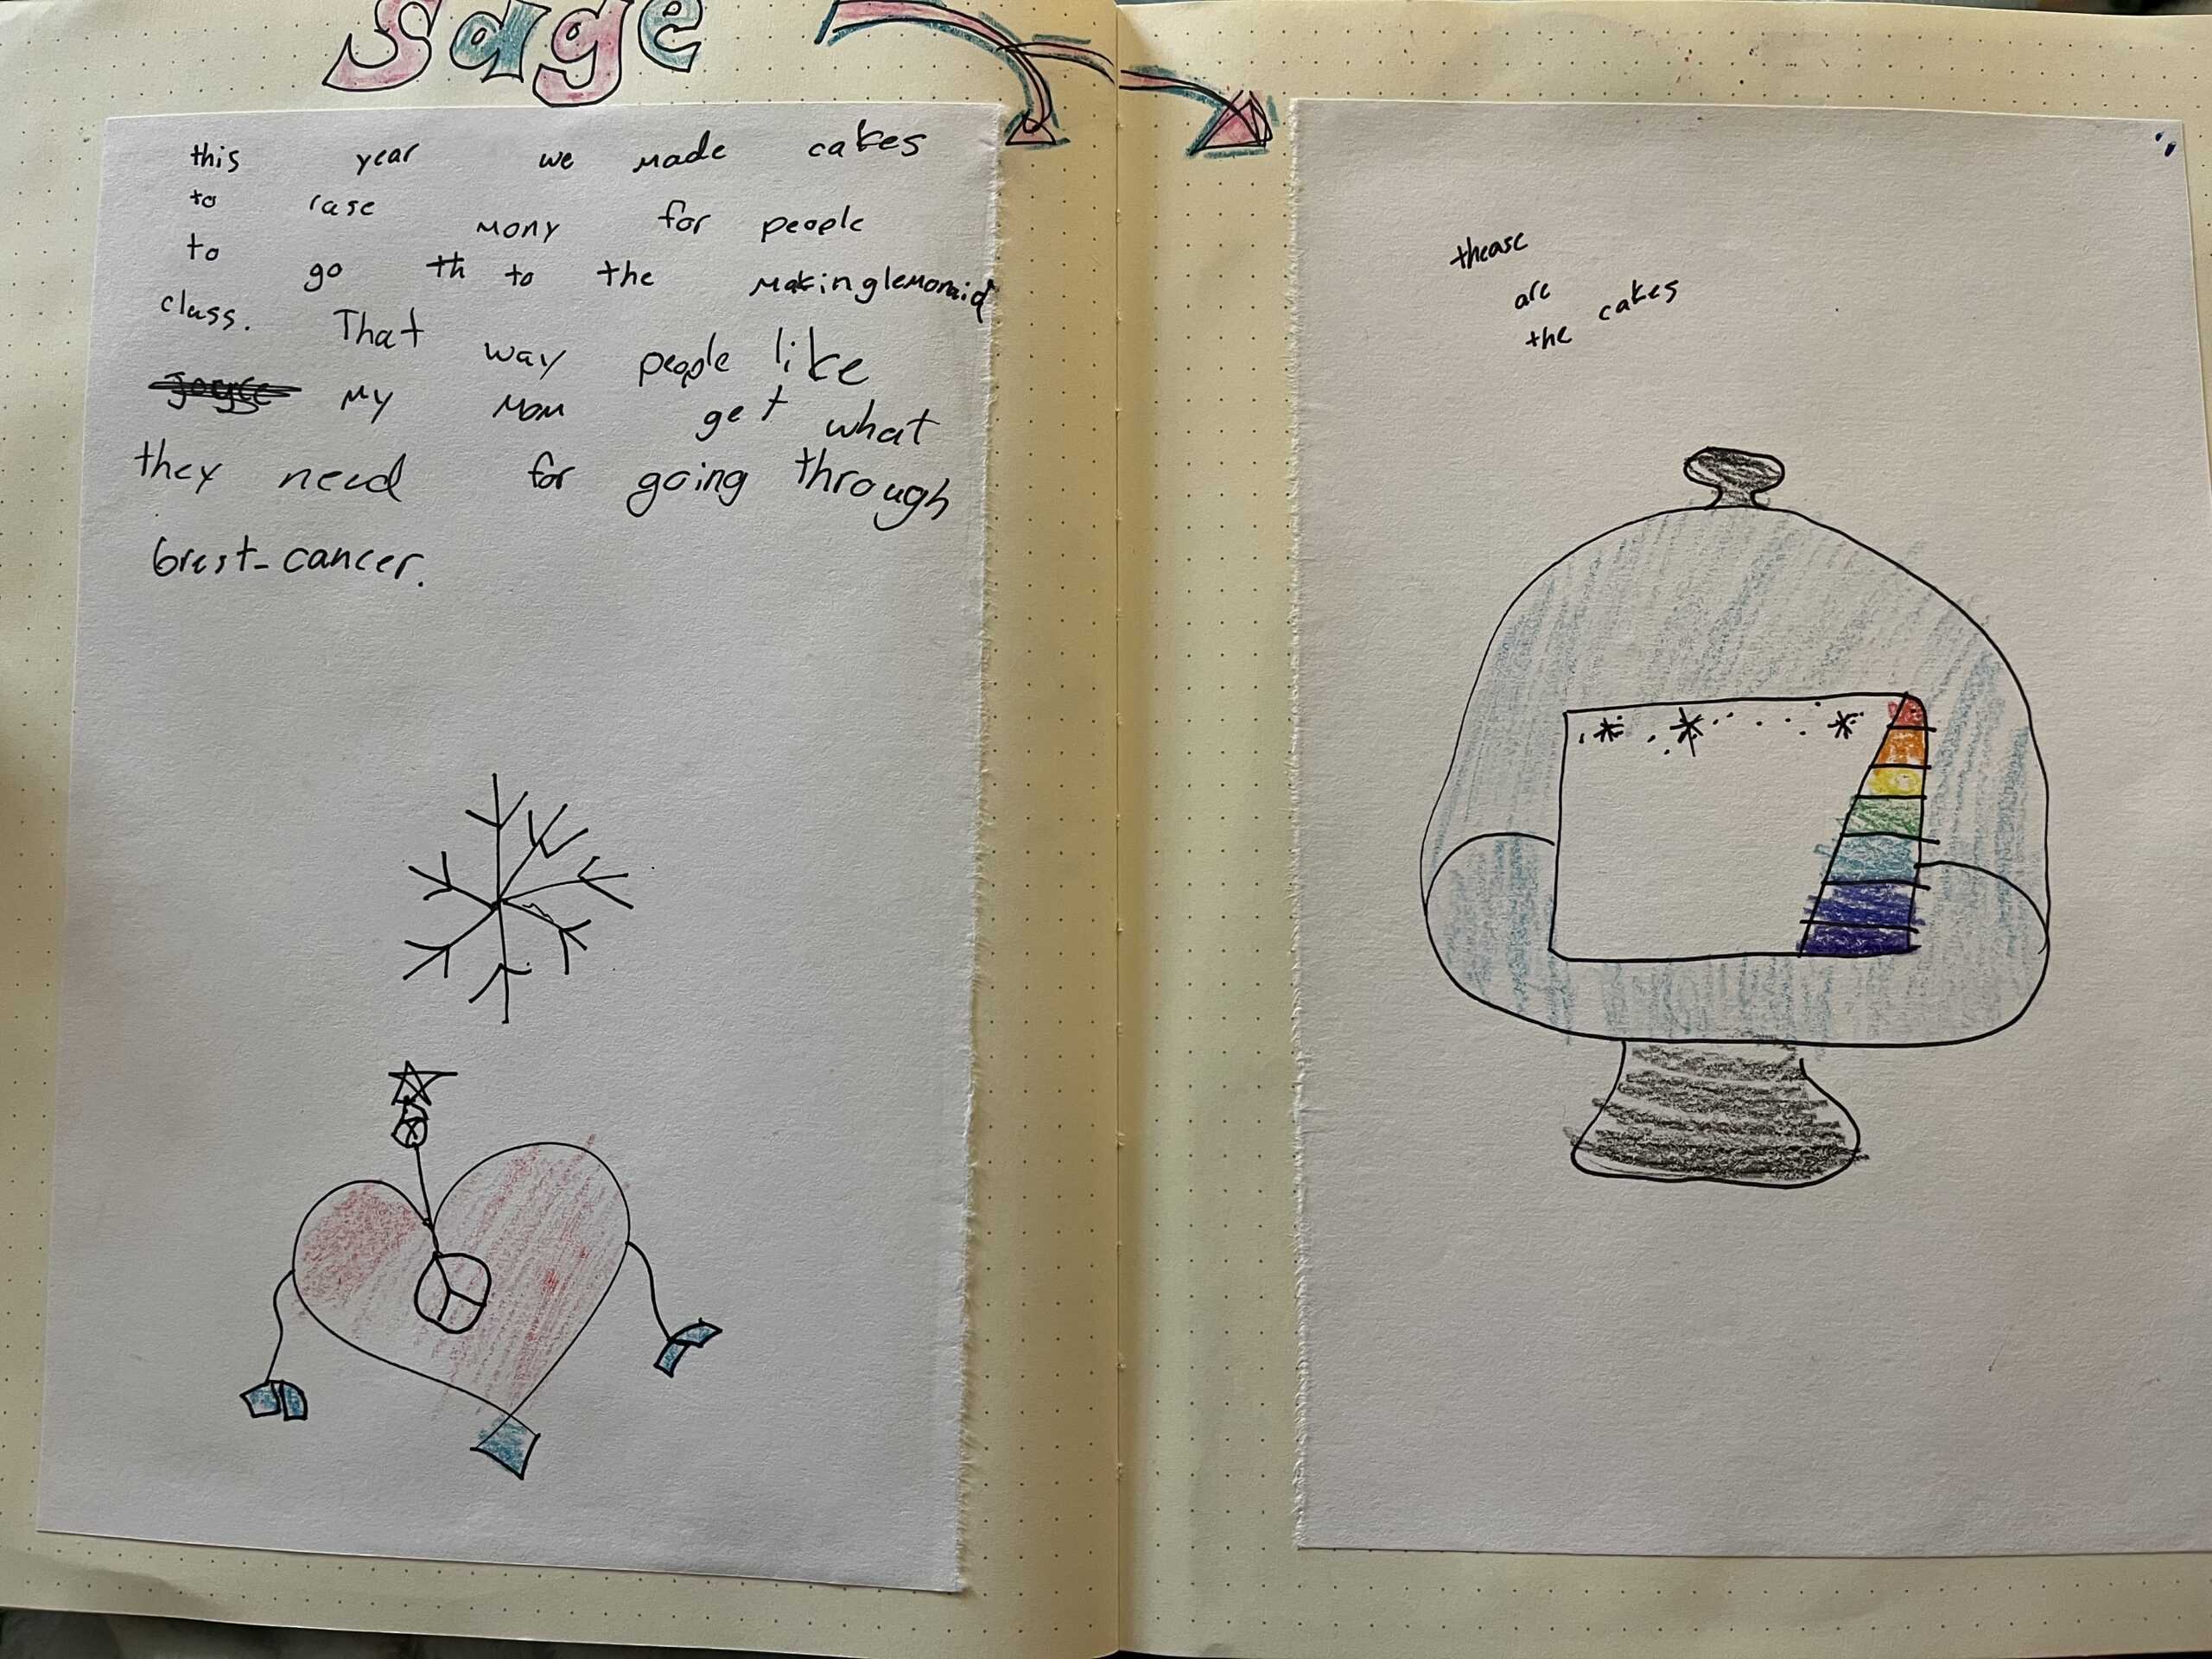 sage
this year we made cakes
to rase mony for people
to go th to the makinglemonaid
class. That way people like
my mom get what
they need for going through
brest-cancer.
thease
are the cakes